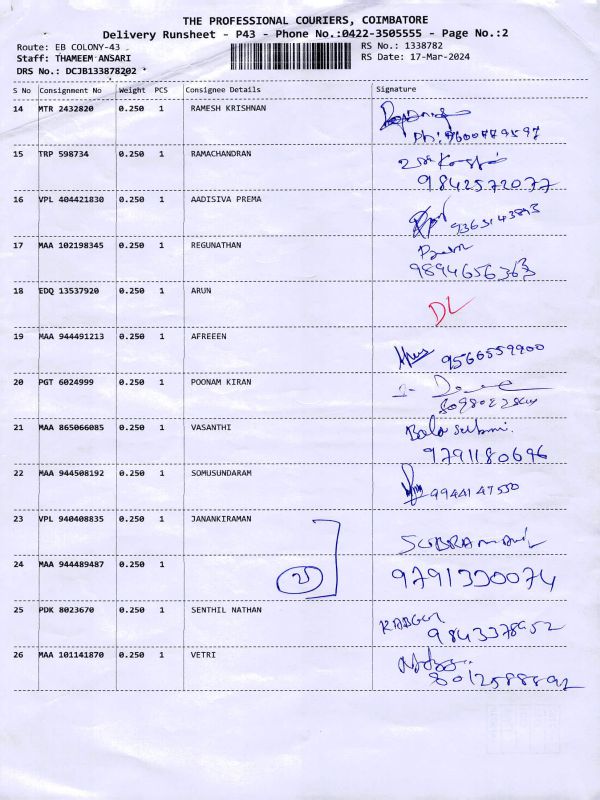 THE PROFESSIONAL COURIERS, COIMBATORE
Delivery Runsheet - P43 - Phone No.:0422-3505555 - Page No.:2
Route: EB COLONY-43 RS No.: 1338782
Staff: THAMEEM ANSARI RS Date: 17-Mar-2024
DRS No.: DCJB133878202
S No Consignment No Weight PCS Consignee Details Signature
14 MTR 2432820 0.250 1 RAMESH KRISHNAN
15 TRP 598734 0.250 1 RAMACHANDRAN
9842572077
16 VPL 404421830 0.250 1 AADISIVA PREMA
17 MAA 102198345 0.250 1 REGUNATHAN
9894656363
18 EDQ 13537920 0.250 1 ARUN
DL
19 MAA 944491213 0.250 1 AFREEEN
9566559900
20 PGT 6024999 0.250 1 POONAM KIRAN
21 MAA 865066085 0.250 1 VASANTHI
9791180696
22 MAA 944508192 0.250 1 SOMUSUNDARAM
9944147550
23 VPL 940408835 0.250 1 JANANKIRAMAN
24 MAA 944489487 0.250 1
9791330074
25 PDK 8023670 0.250 1 SENTHIL NATHAN
9843378952
26 MAA 101141870 0.250 1 VETRI
8012588892